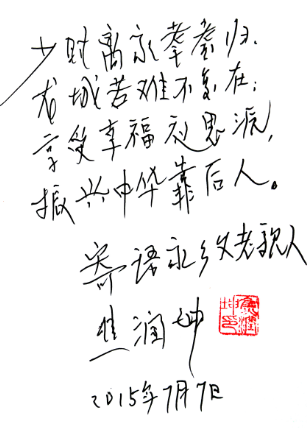 少时离永耄耋归,
龙城苦难不复在;
享受幸福永思源,
振兴中华靠后人。
寄语永乡父老亲人
焦润坤
2015年7月7日